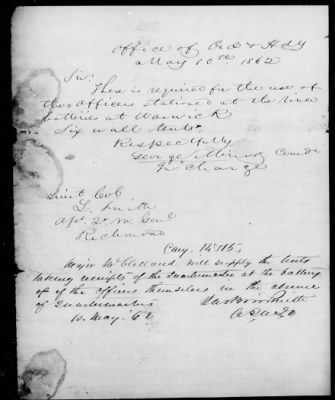 Office of Ord & Hdy
May 10th 1862
Sir:
There is required for the use of
the Officers stationed at the river
batteries at Warwick
Six wall tents.
Respectfully
George Minor Comdr
In charge
Lieut Col
L. Smith
Richmond
Major McClelland will supply the tents
taking receipts of the Quartermaster at the battery
or of the officers themselves in the absence
of Quartermasters
10 May '62